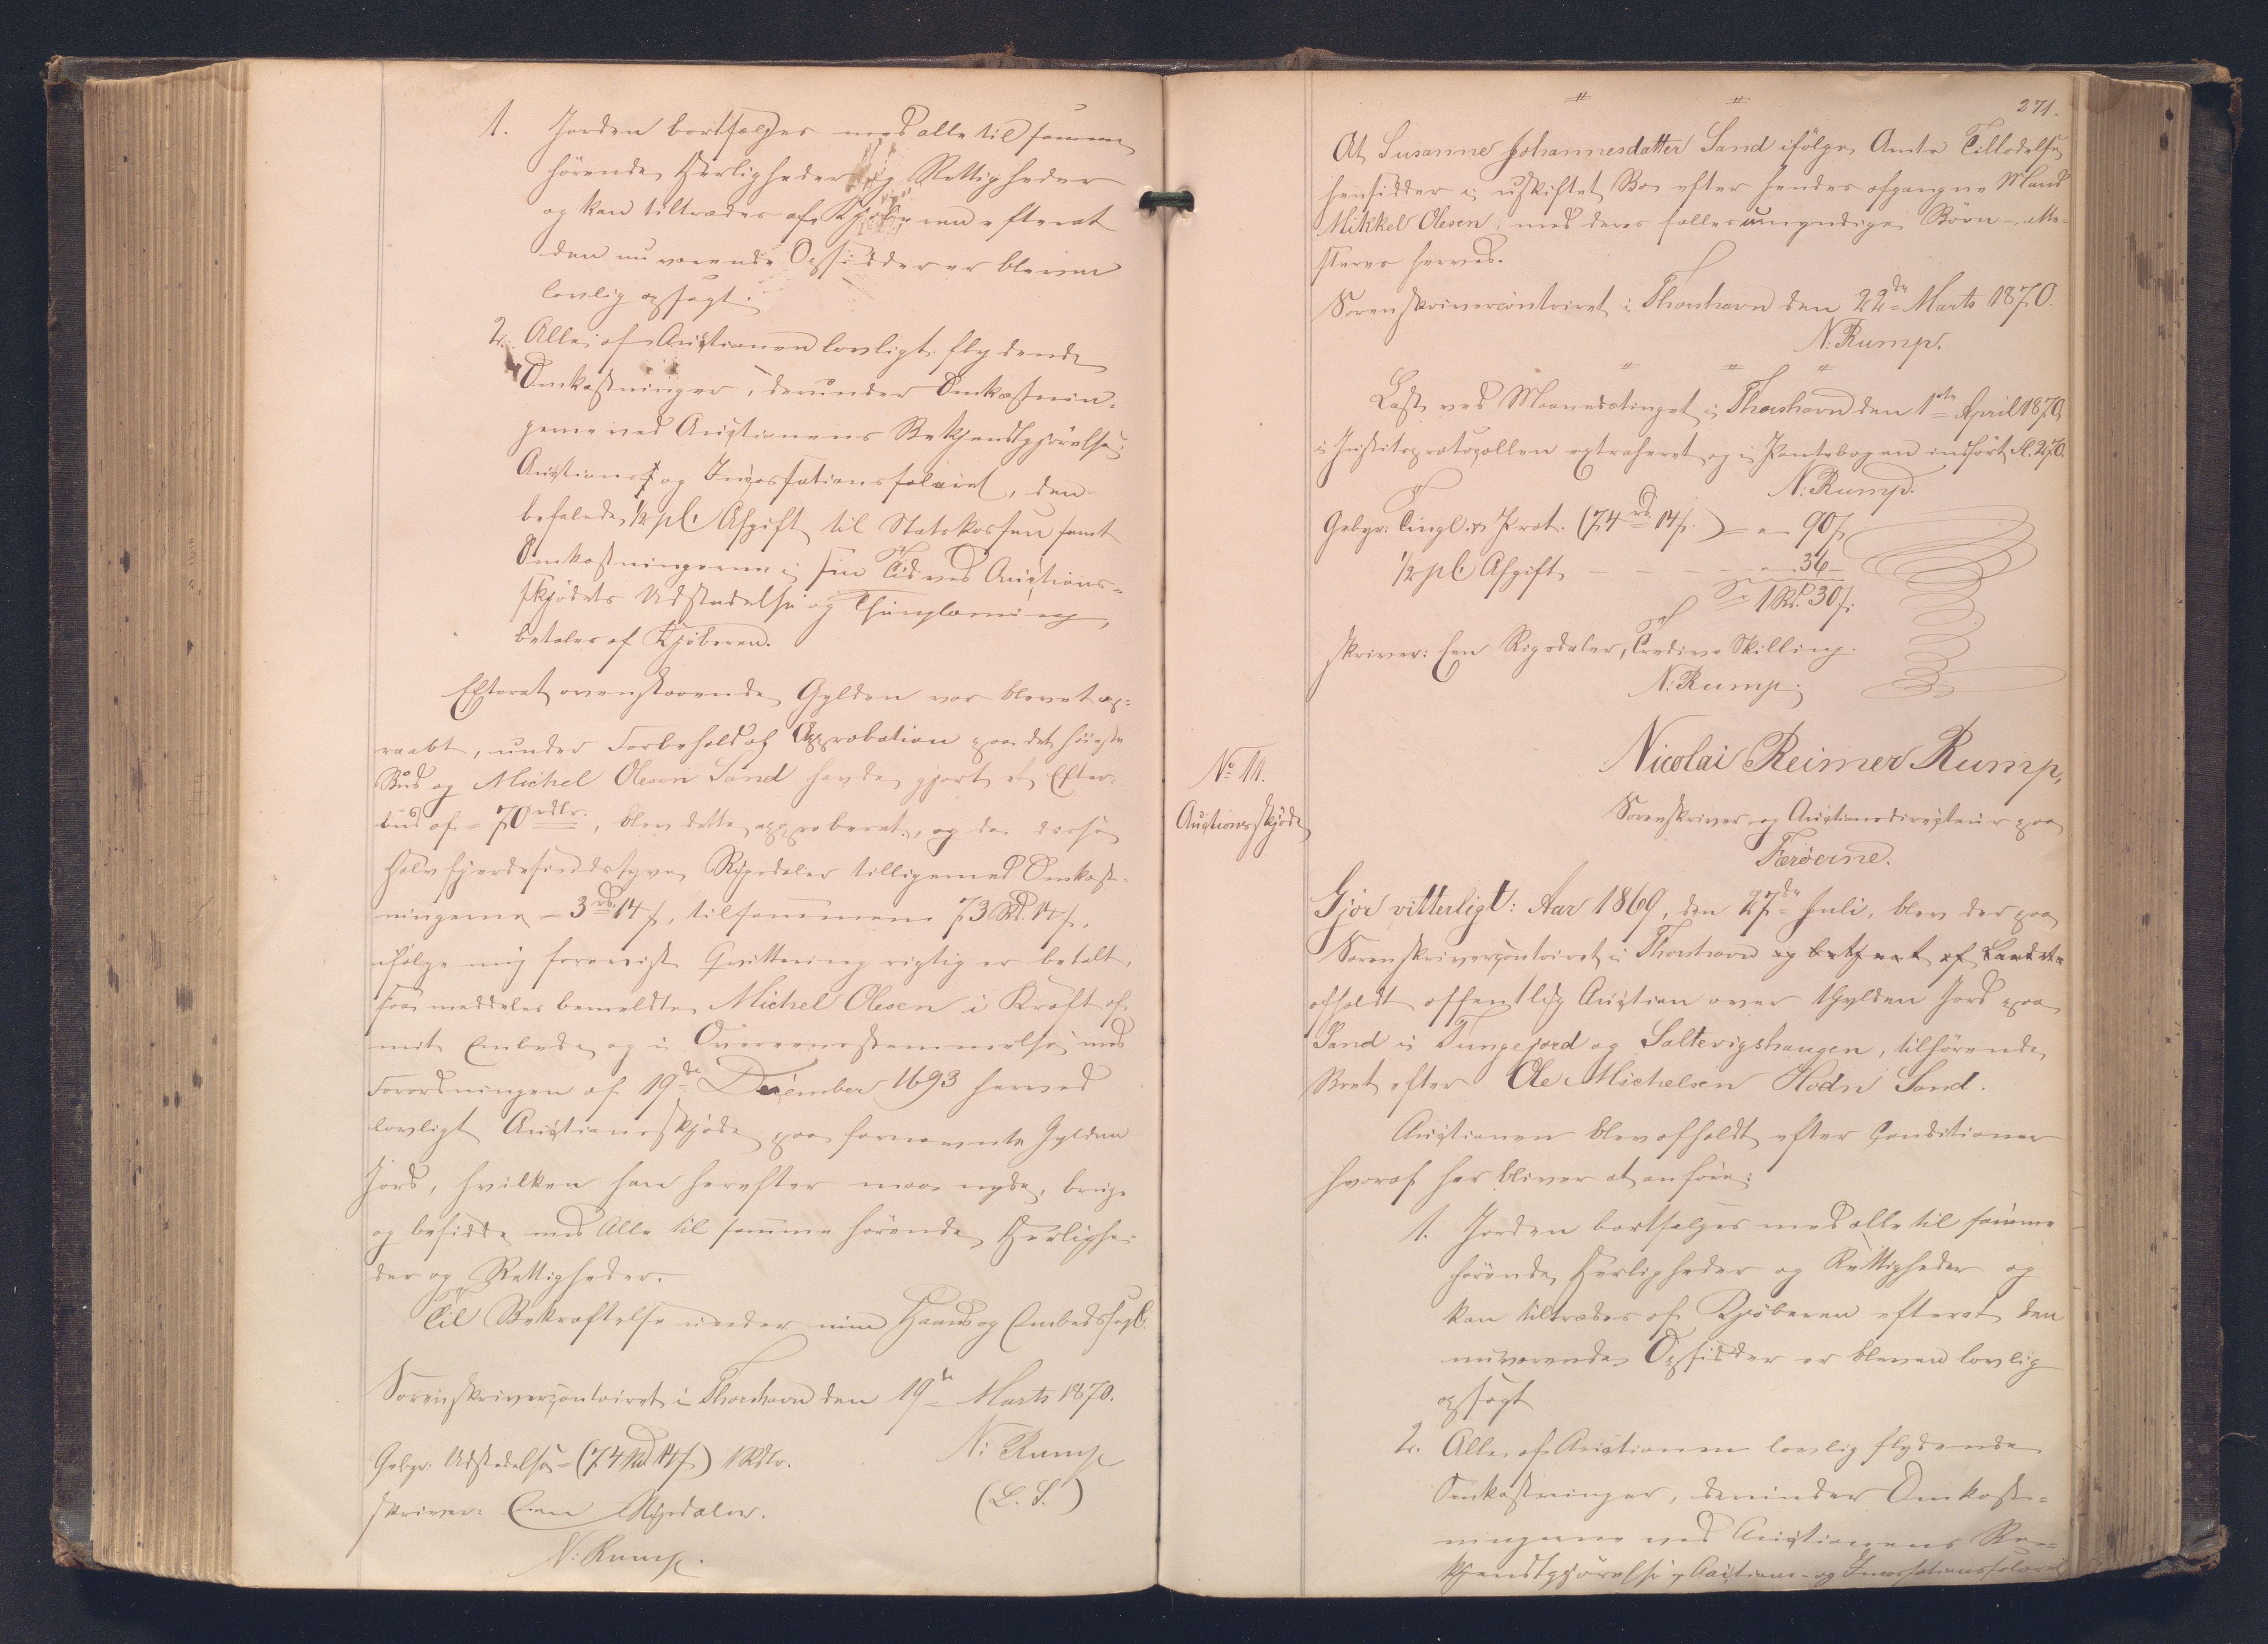 1. Jorden bortsælges med alle til samme
hörende Herligheder og Rettigheder
og kan tiltrædes af Kjøberen efterat
den nu værende Opsidder er bleven
lovlig opsagt.
2. Alle af Auctionen lovligt flydende
Omkostninger, derunder Omkostnin-
gerne ved Auctionens Bekjendtgjörelse,
Auctions og Incassationssalairet, den
befalede 1/2 pCt Afgift til Statskassen samt
Omkostningerne i sin Tid ved Auctions-
skjødets Udstedelse og Thinglæsning,
betales af Kjöberen.
Efterat ovenstaaende Gylden var blevet op-
raabt, under Forbehold af Approbation paa det höieste
Bud og Michel Olesen Sand havde gjort et Efter-
bud af 70 rdlr., blev dette approberet, og da disse
Halvfjerdesindstyve Rigsdaler tilligemed Omkost-
ningerne 3 rd. 14 s, tilsammen 73 Rd. 14 s,
ifølge mig forevist Qvittering rigtig er betalt,
saa meddeles bemeldte Michel Olesen i Kraft af
mit Embede og i Overeensstemmelse med
Forordningen af 19de December 1693 herved
lovligt Auctionsskjöde paa fornævnte Gylden
Jord, hvilken han herefter maa nyde, bruge
og besidde med Alle til samme hörende Herlighe-
der og Rettigheder.
Til Bekræftelse under min Haand og Embedssegl.
Sorenskrivercontoiret i Thorshavn den 19de Marts 1870.
N: Rump
Gebyr: Udstedelse (74 Rd 14 s) 1 Rdlr.
(L. S.)
skriver: Een Rigsdaler.
N: Rump.
271.
At Susanne Johannesdatter Sand ifölge Amts Tilladelse
hensidder i uskiftet Bo efter hendes afgangne Mand
Mikkel Olesen, med deres fælles umyndige Börn - atte-
steres herved.
Sorenskrivercontoiret i Thorshavn den 22de Marts 1870.
N. Rump.
Læst ved Maanedstinget i Thorshavn den 1ste April 1870,
i Justitsprotocollen extraheret og i Pantebogen indført fl. 270.
N: Rump.
Gebyr: Tingl. & Prot. (74 rd. 14 s.) " 90 s
1/2 pCt Afgift " 36
1 Rd. 30 s.
skriver: Een Rigsdaler, Tredive Skilling.
N: Rump.
No 11.
Auctionsskjöde
Nicolai Reimer Rump,
Sorenskriver og Auctionsdirecteur paa
Færöerne.
Gjör vitterligt: Aar 1869, den 27de Juli, blev der paa
Sorenskrivercontoiret i Thorshavn og betjent af Landets
afholdt offentlig Auction over 1 Gylden Jord paa
Sand i Tungejord og Saltevigshaugen, tilhörende
Boet efter Ole Michelsen Hodn Sand.
Auctionen blev afholdt efter Conditioner
hvoraf her bliver at anföre:
1. Jorden bortsælges med alle til samme
hörende Herligheder og Rettigheder og
kan tiltrædes af Kjöberen efterat den
nuværende Opsidder er bleven lovlig
opsagt
2. Alle af Auctionen lovlig flydende
Omkostninger, derunder Omkost-
ningerne ved Auctionens Be-
kjendtgjörelse, Auctions- og Incassationssalairet